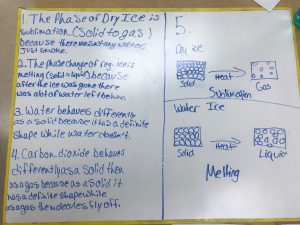 1. The Phase of Dry Ice is
sublimation (Solid to gas)
because there wasn't any water
just smoke.
2. The phase change of reg. ice is
melting (solid → liquid) because
after the ice was gone there
was a lot of water left behind.
3. Water behaves differently
as a solid because it has a definite
shape while water doesn't.
4. Carbon dioxide behaves
differently as a Solid then
as a gas because as a solid it
has a definite shape while
as a gas the molecules fly off.
5.
Dry ice
Heat
Solid
Gas
Sublimation
Water Ice
Heat
Solid
Liquid
Melting